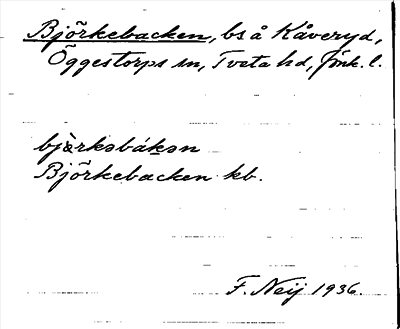 Björkebacken, bs å Kåveryd,
Öggestorps sn, Tveta hd, Jönk. l.
bjœ̀rkəbákən
Björkebacken kb.
F. Neij 1936.